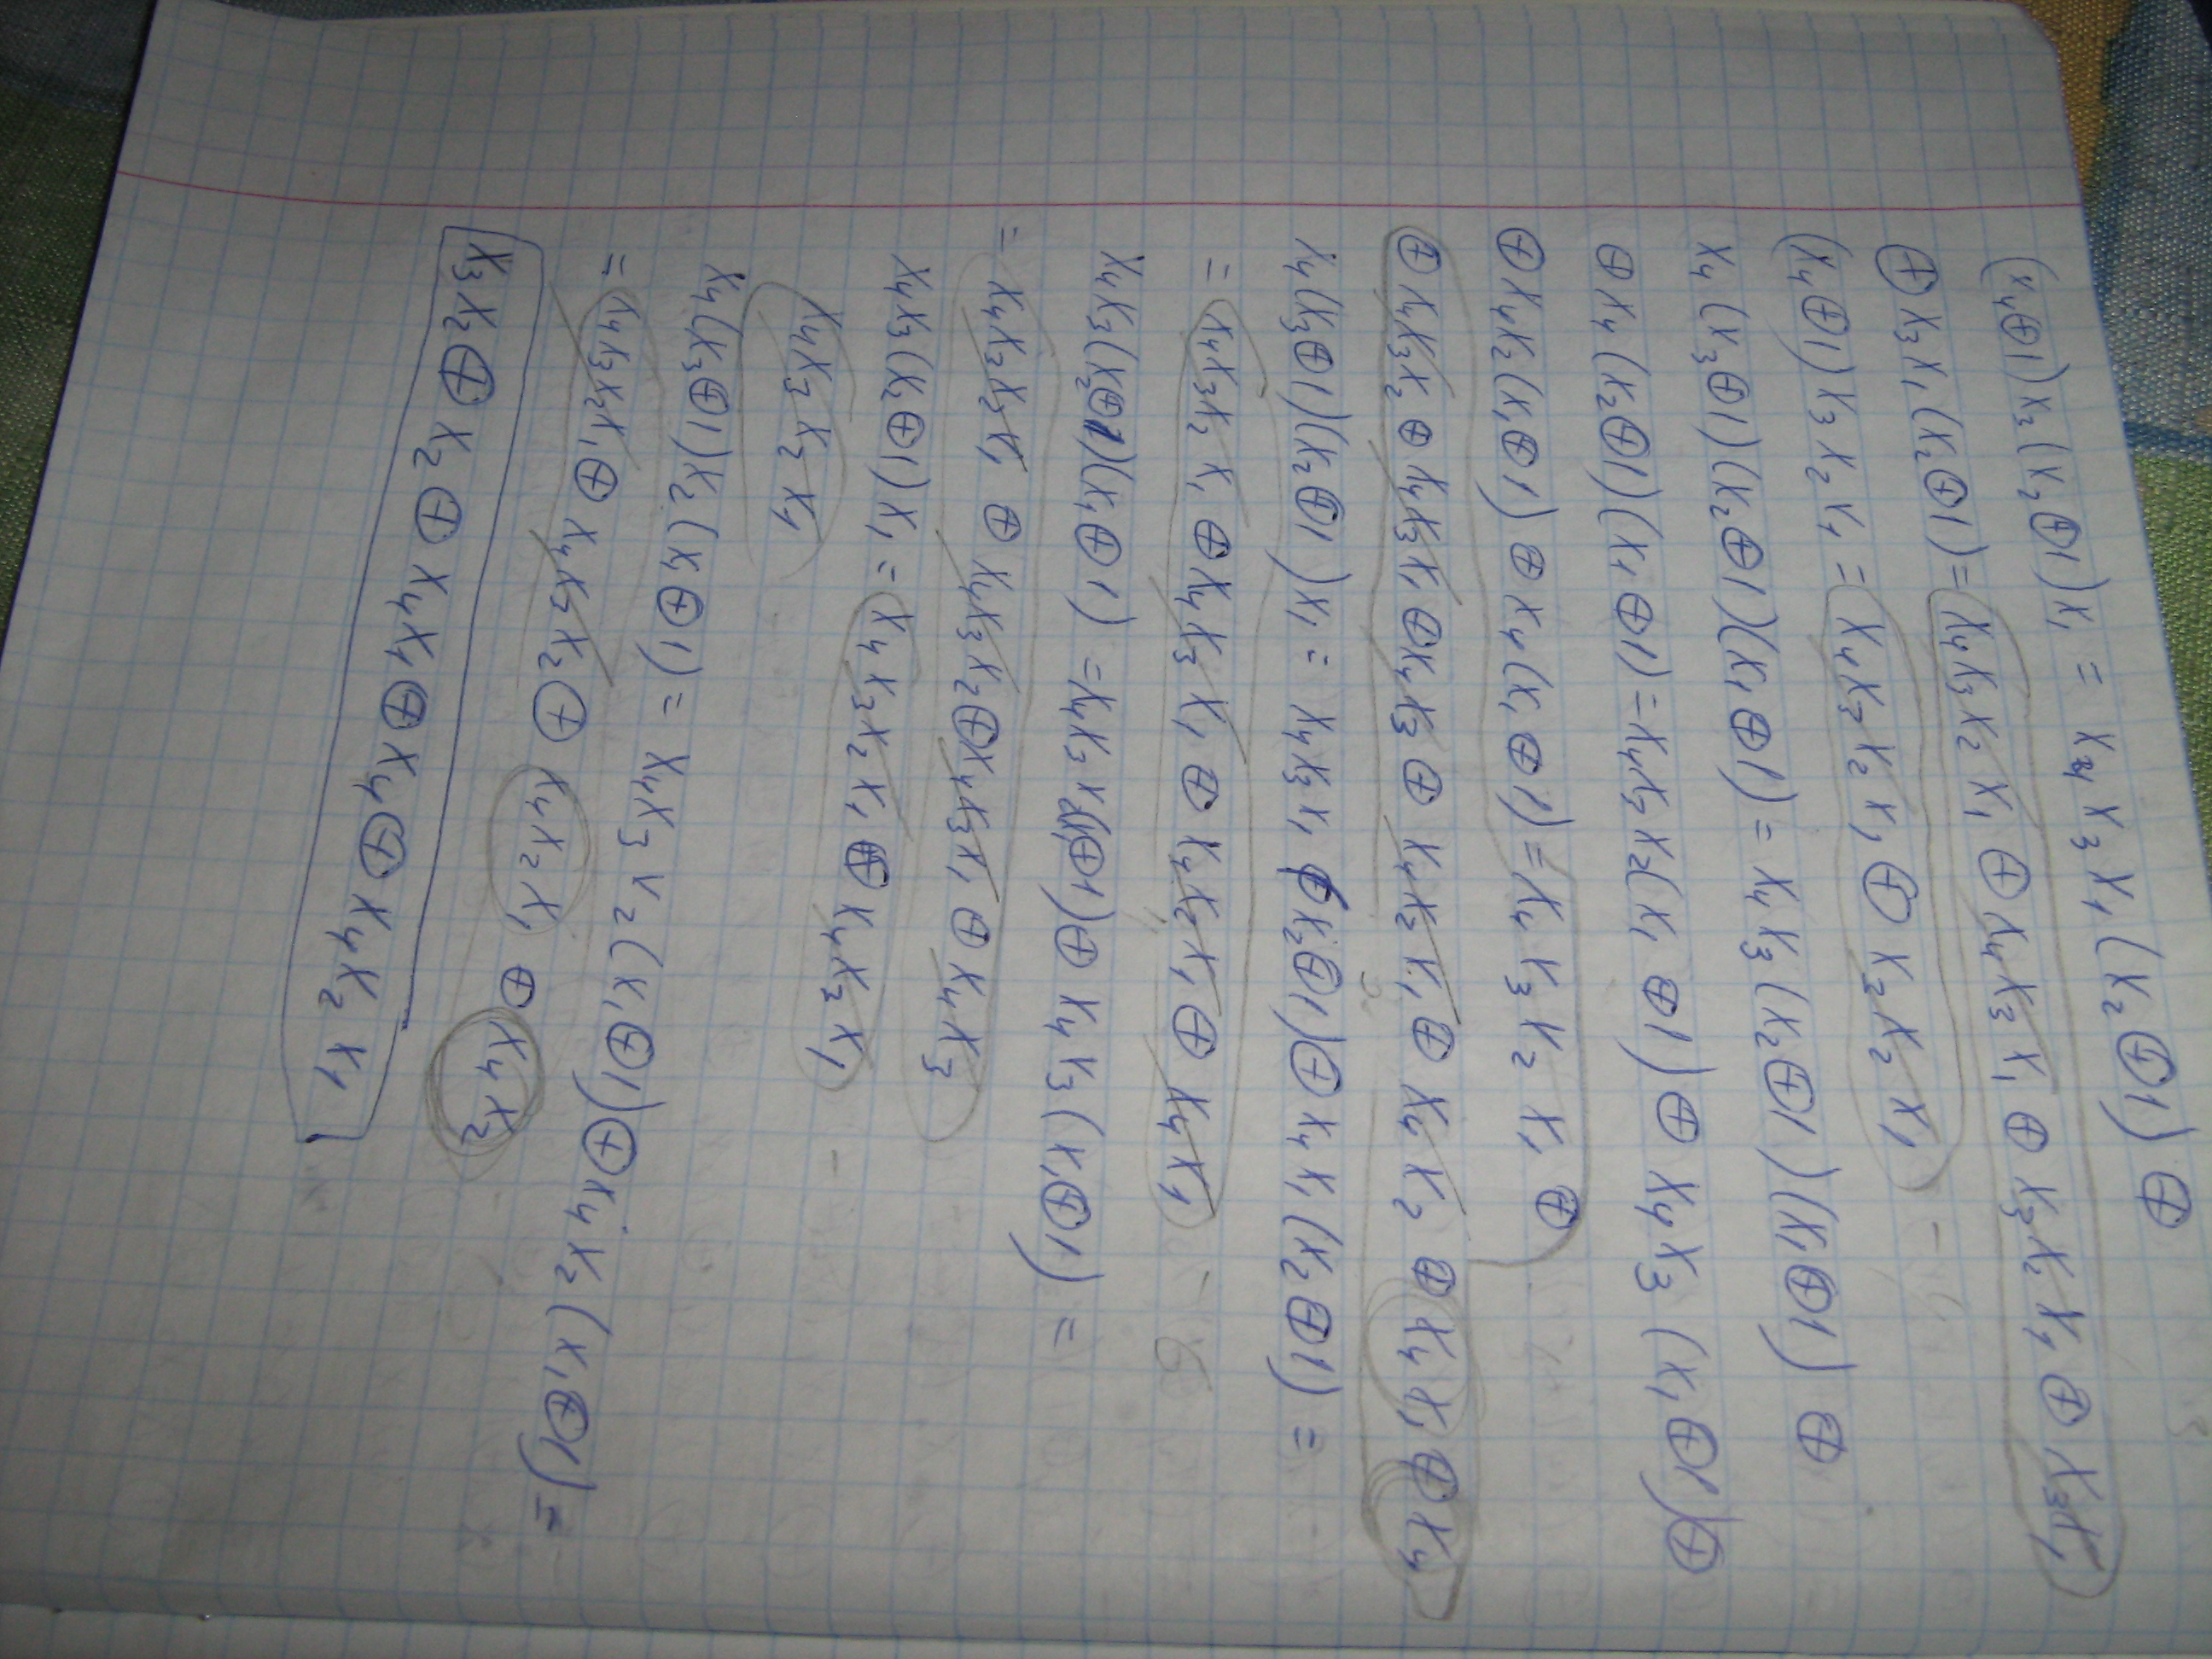 (x₄⊕1)x₃(x₂⊕1)x₁ = x₄x₃x₁(x₂⊕1)⊕
⊕x₃x₁(x₂⊕1)=x₄x₃x₂x₁⊕x₄x₃x₁⊕x₃x₂x₁⊕x₃x₁
(x₄⊕1)x₃x₂x₁ = x₄x₃x₂x₁⊕x₃x₂x₁
x₄(x₃⊕1)(x₂⊕1)(x₁⊕1)= x₄x₃(x₂⊕1)(x₁⊕1)⊕
⊕x₄(x₂⊕1)(x₁⊕1)=x₄x₃x₂(x₁⊕1)⊕x₄x₃(x₁⊕1)⊕
⊕x₄x₂(x₁⊕1)⊕x₄(x₁⊕1)=x₄x₃x₂x₁⊕
⊕x₄x₃x₂⊕x₄x₃x₁⊕x₄x₃⊕x₄x₂x₁⊕x₄x₂⊕x₄x₁⊕x₄
x₄(x₃⊕1)(x₂⊕1)x₁ = x₄x₃x₁(x₂⊕1)⊕x₄x₁(x₂⊕1) =
= x₄x₃x₂x₁⊕x₄x₃x₁⊕x₄x₂x₁⊕x₄x₁
x₄x₃(x₂⊕1)(x₁⊕1) =x₄x₃x₂(x₁⊕1)⊕x₄x₃(x₁⊕1) =
= x₄x₃x₂x₁⊕x₄x₃x₂⊕x₄x₃x₁⊕x₄x₃
x₄x₃(x₂⊕1)x₁ = x₄x₃x₂x₁⊕x₄x₃x₁
x₄x₃x₂x₁
x₄(x₃⊕1)x₂(x₁⊕1) = x₄x₃x₂(x₁⊕1)⊕x₄x₂(x₁⊕1) =
= x₄x₃x₂x₁⊕x₄x₃x₂⊕x₄x₂x₁⊕x₄x₂
x₃x₂⊕x₂⊕x₄x₁⊕x₄⊕x₄x₂x₁